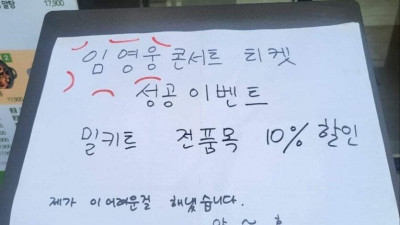 임영웅 콘서트 티켓
성공 이벤트
밀키트 전품목 10% 할인
제가 이 어려운걸 해냈습니다.